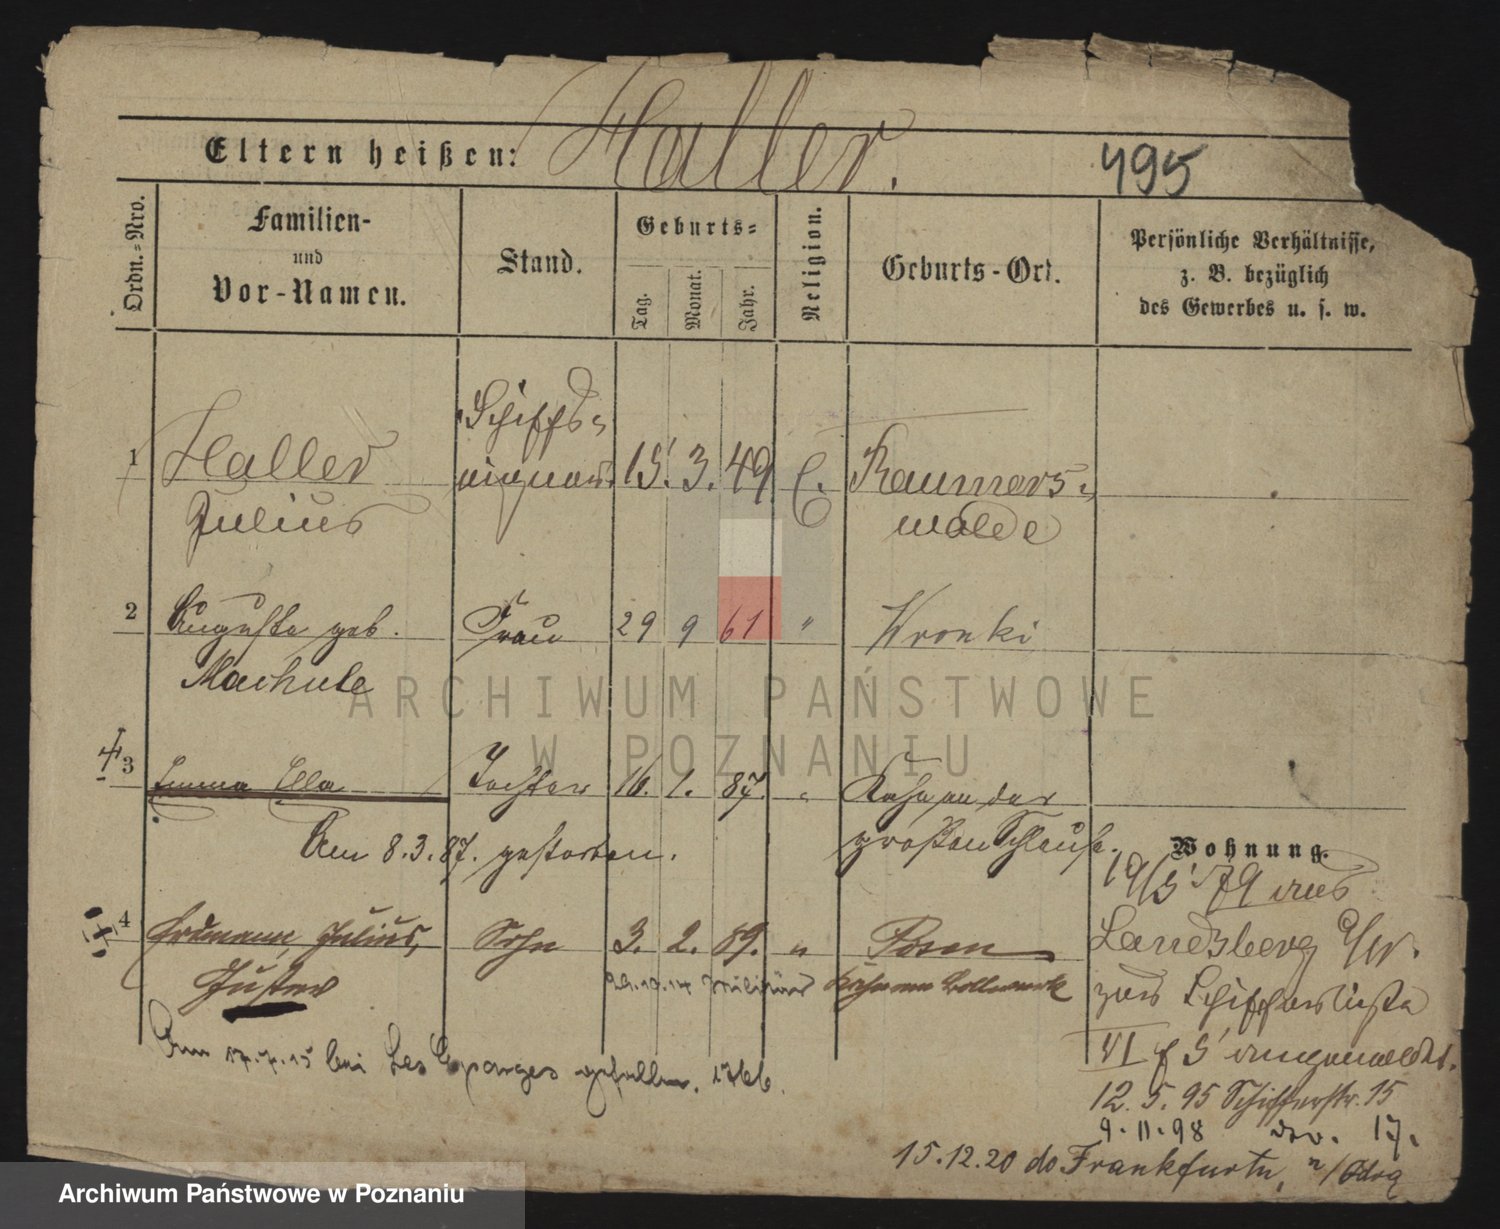 Eltern heißen: Haller.
495
Ordn.-Nro.
Familien-
und
Vor-Namen.
Stand.
Geburts-
Tag.
Monat.
Jahr.
Religion.
Geburts-Ort.
Persönliche Verhältnisse,
z. B. bezüglich
des Gewerbes u. s. w.
1 Haller Schiffs- 15. 3. 49 Raumers-
Julius eigner walde
2 Auguste geb. Frau 29 9 61 " Wronki
Machule
3 Emma Ella Tochter 16. 1. 87. " Kahn an der
Am 8.3.87. gestorben. großen Schleuse.
4 Erdmann, Julius, Sohn 3. 2. 89. " Posen
Gustav Militär Kahn am Bollwerk
Am 17.7.15 bei Les Eparges gefallen.
Wohnung.
19/5 79 aus
Landsberg a/W.
zur Schifferliste
VI f 5 angemeldet.
12. 5. 95 Schifferstr. 15
9. 11. 98 17.
15.12.20 do Frankfurtu n/Odrą
ARCHIWUM PAŃSTWOWE
W POZNANIU
Archiwum Państwowe w Poznaniu